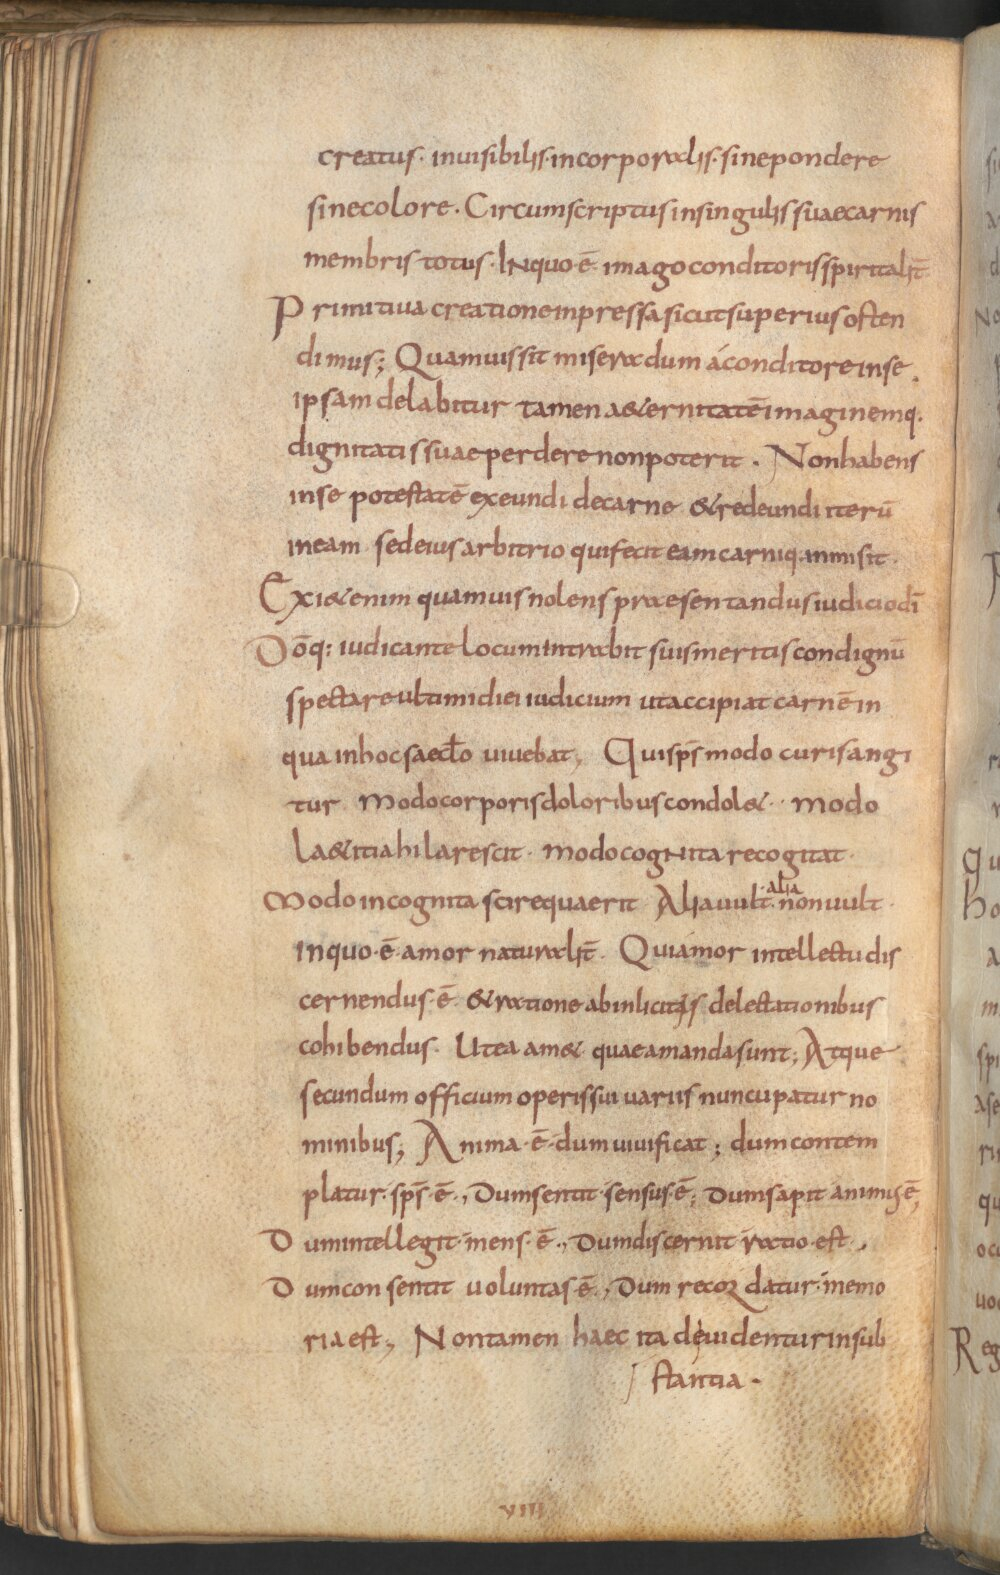 creatus· inuisibilis· incorporalis· sine pondere
sine colore· Circumscriptus in singulis suae carnis
membris totus· In quo·ē· imago conditoris spiritalit̄
Primitiua creatione inpressa sicut superius osten
dimus; Quamuis sit miseranda dum á conditore in se
ipsam delabitur tamen a&ernitatē imaginemq·
dignitatis suae perdere non poterit· Non habens
in se potestatē exeundi de carne & redeundi iterū
in eam sed eius arbitrio qui fecit eam carniq· inmisit·
Exi& enim quamuis nolens praesentandus iudicio dī
Dōq: iudicante locum intrabit suis meritis condignū
spectare ultimi diei iudicium ut accipiat carnē in
qua in hoc saecło uiuebat, Qui sps̄ modo curis angi
tur modo corporis doloribus condol&· modo
la&itia hilarescit· modo cognita recogitat·
Modo incognita scire quaerit Alia uult· alia non uult·
in quo·ē· amor naturalit̄· Qui amor intellectu dis
cernendus·ē· & ratione ab inlicitis delectationibus
cohibendus· Ut ea am& quae amanda sunt; Atque
secundum officium operis sui uariis nuncupatur no
minibus; Anima·ē· dum uiuificat; dum contem
platur· sps̄·ē·, Dum sentit· sensus·ē; Dum sapit animus ē,
Dum intellegit· mens·ē·, Dum discernit ratio·est·,
Dum consentit uoluntas ē·, Dum recordatur· memo
ria est, Non tamen haec ita deuidentur in sub
stantia·
VIII